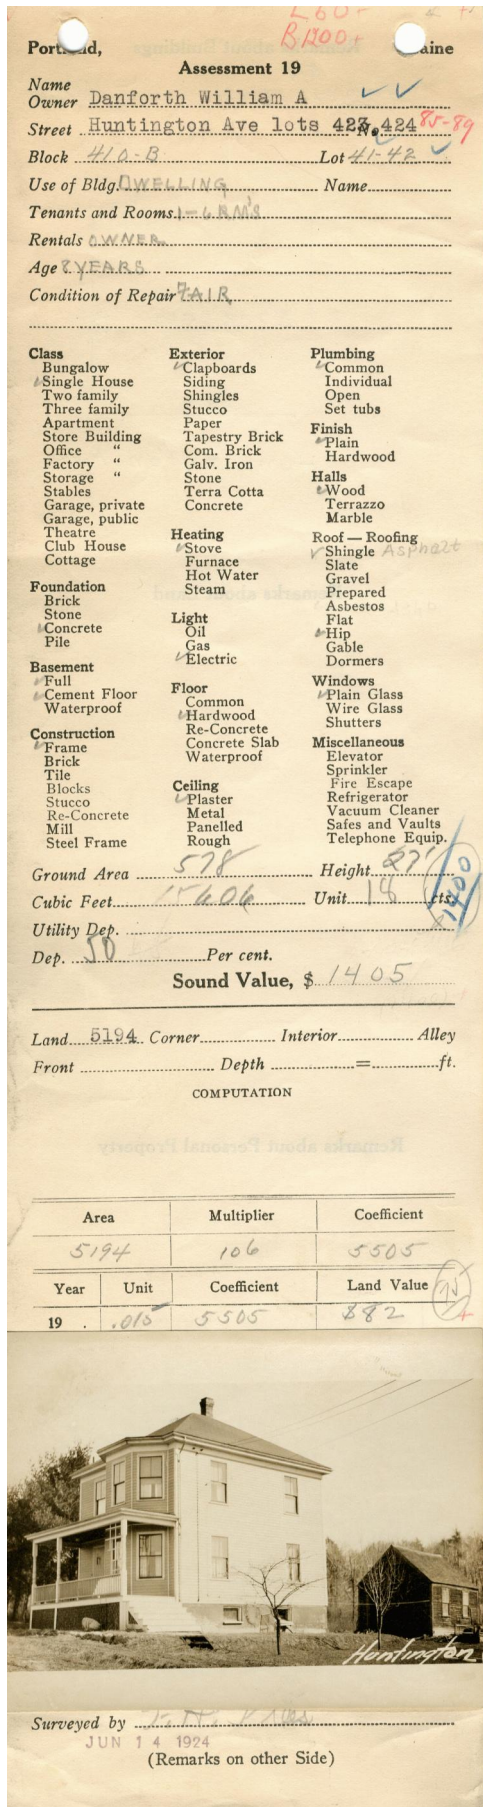 L 60-
B 1200+
Portland, Maine
Assessment 19
Name
Owner Danforth William A
Street Huntington Ave lots 423, 424 No. 85-89
Block 410-B Lot 41-42
Use of Bldg. DWELLING Name
Tenants and Rooms 1-6 RM'S
Rentals OWNER
Age 8 YEARS
Condition of Repair FAIR
Class
Bungalow
Single House
Two family
Three family
Apartment
Store Building
Office "
Factory "
Storage "
Stables
Garage, private
Garage, public
Theatre
Club House
Cottage
Foundation
Brick
Stone
Concrete
Pile
Basement
Full
Cement Floor
Waterproof
Construction
Frame
Brick
Tile
Blocks
Stucco
Re-Concrete
Mill
Steel Frame
Exterior
Clapboards
Siding
Shingles
Stucco
Paper
Tapestry Brick
Com. Brick
Galv. Iron
Stone
Terra Cotta
Concrete
Heating
Stove
Furnace
Hot Water
Steam
Light
Oil
Gas
Electric
Floor
Common
Hardwood
Re-Concrete
Concrete Slab
Waterproof
Ceiling
Plaster
Metal
Panelled
Rough
Plumbing
Common
Individual
Open
Set tubs
Finish
Plain
Hardwood
Halls
Wood
Terrazzo
Marble
Roof — Roofing
Shingle Asphalt
Slate
Gravel
Prepared
Asbestos
Flat
Hip
Gable
Dormers
Windows
Plain Glass
Wire Glass
Shutters
Miscellaneous
Elevator
Sprinkler
Fire Escape
Refrigerator
Vacuum Cleaner
Safes and Vaults
Telephone Equip.
Ground Area 578 Height 27'
Cubic Feet 15606 Unit 18 cts.
1400
Utility Dep.
Dep. 50 Per cent.
Sound Value, $ 1405
Land 5194 Corner Interior Alley
Front Depth = ft.
COMPUTATION
Remarks about Personal Property
Area Multiplier Coefficient
5194 106 5505
Year Unit Coefficient Land Value 75
19 . .015 5505 $82
Huntington
Surveyed by
JUN 14 1924
(Remarks on other Side)